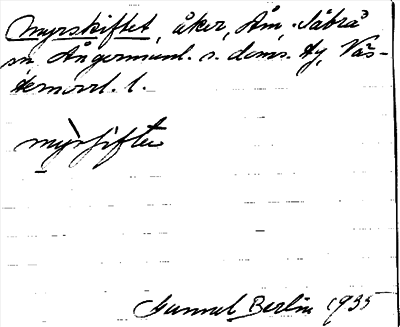 Myrskiftet, åker, Äm, Säbrå
sn, Ångermanl. s. doms. Hg, Väs-
ternorrl. l.
myrsifte
Gunnel Berlin 1935